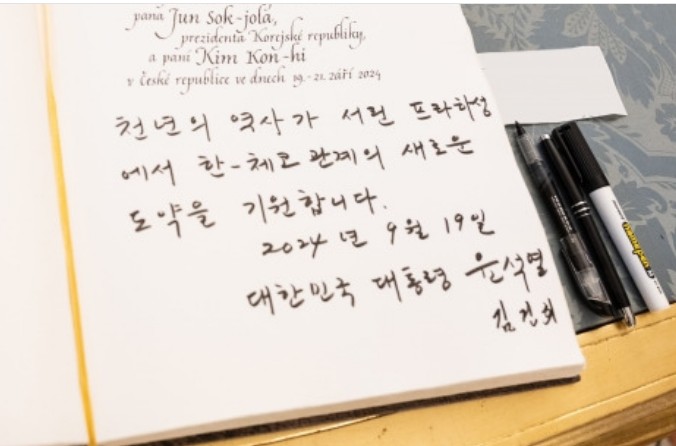 pana Jun Sok-jola,
prezidenta Korejské republiky,
a paní Kim Kon-hi
v české republice ve dnech 19.-21. září 2024
천년의 역사가 서린 프라하성
에서 한-체코 관계의 새로운
도약을 기원합니다.
2024년 9월 19일
대한민국 대통령 윤석열
김건희
namepen